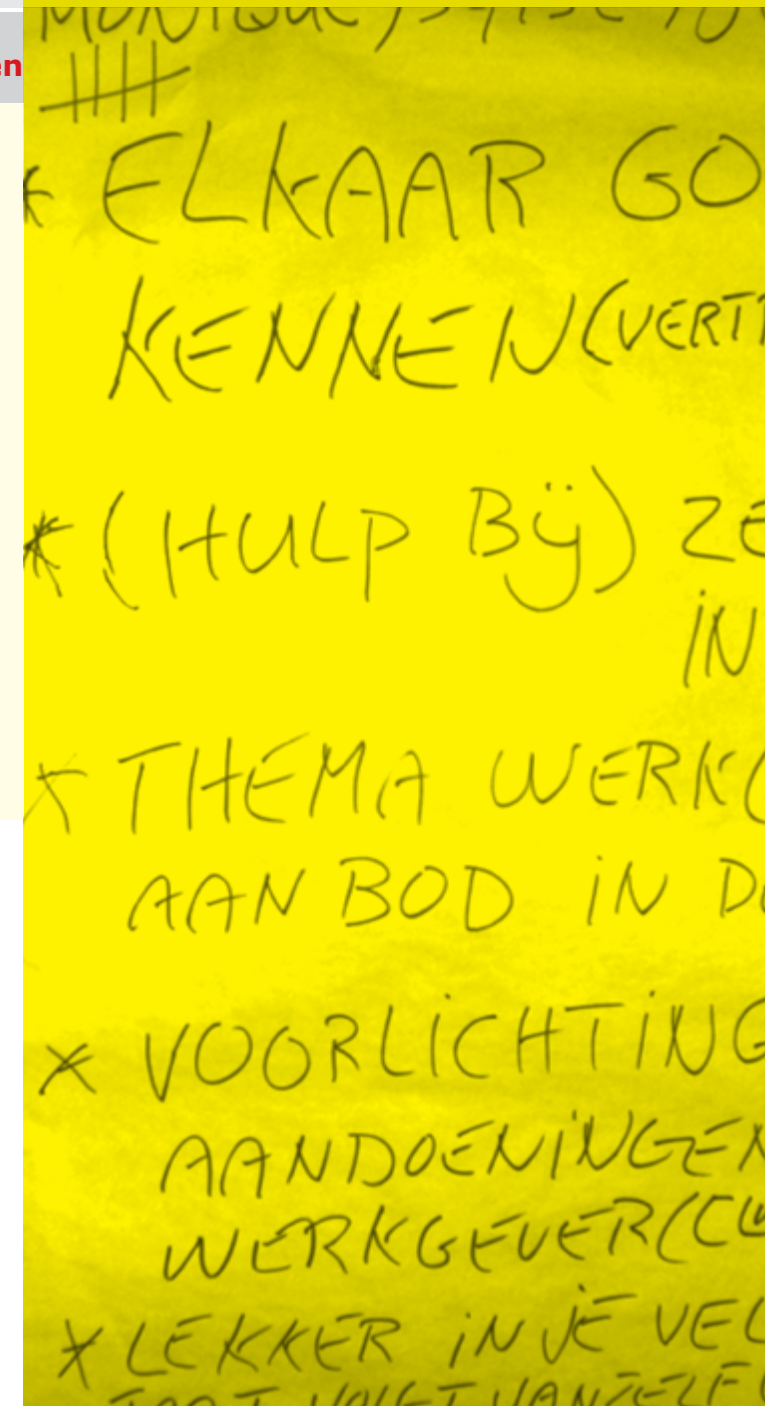 en
MONIQUE
* ELKAAR GO
KENNEN (VERT
* (HULP BIJ) ZE
IN
* THEMA WERK(
AAN BOD IN D
* VOORLICHTING
AANDOENINGEN
WERKGEVER (C
* LEKKER IN JE VEL
VOLGT VANZELF